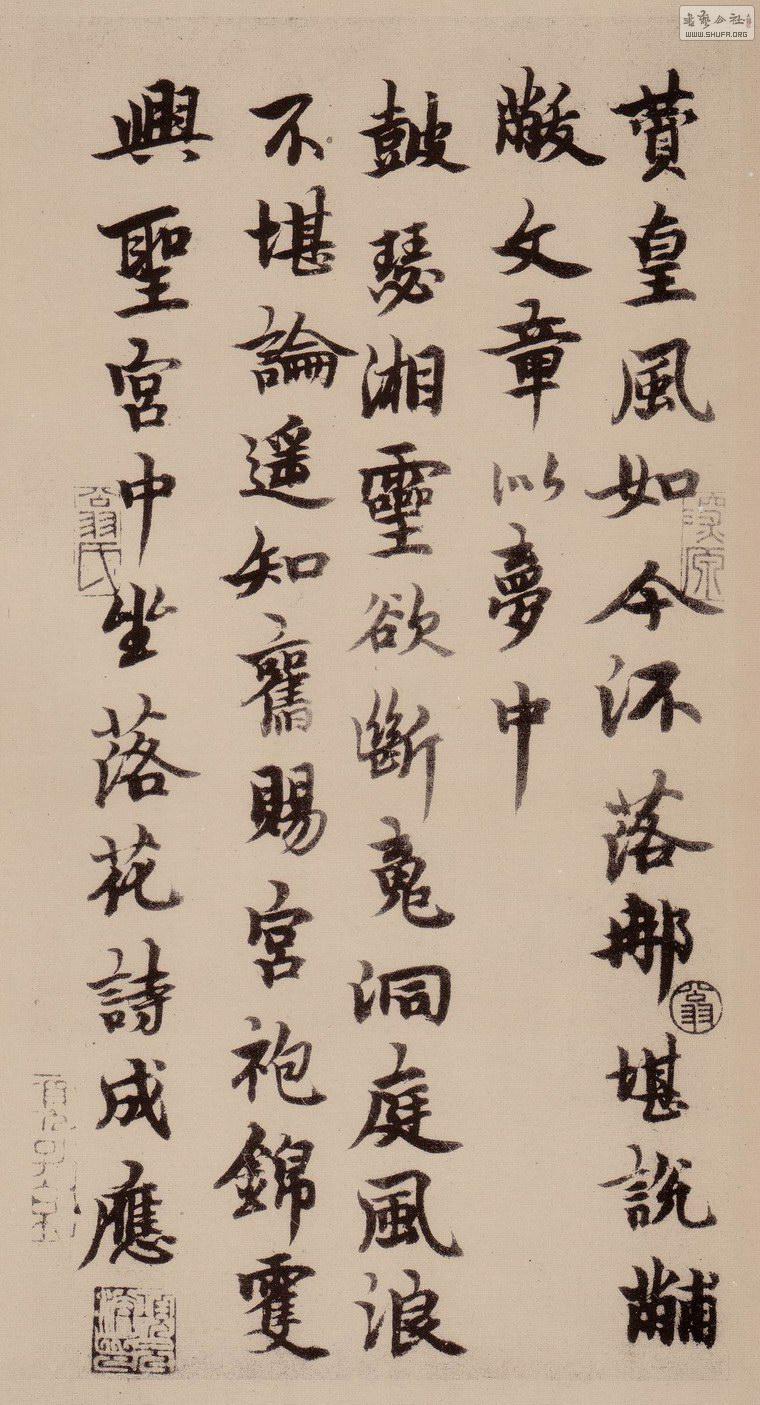 書藝公社
WWW.SHUFA.ORG
贊皇風如今流落那堪說黼
黻文章似夢中
鼓瑟湘靈欲斷魂洞庭風浪
不堪論遥知舊賜宮袍錦雙
興聖宮中坐落花詩成應
翁氏
翁